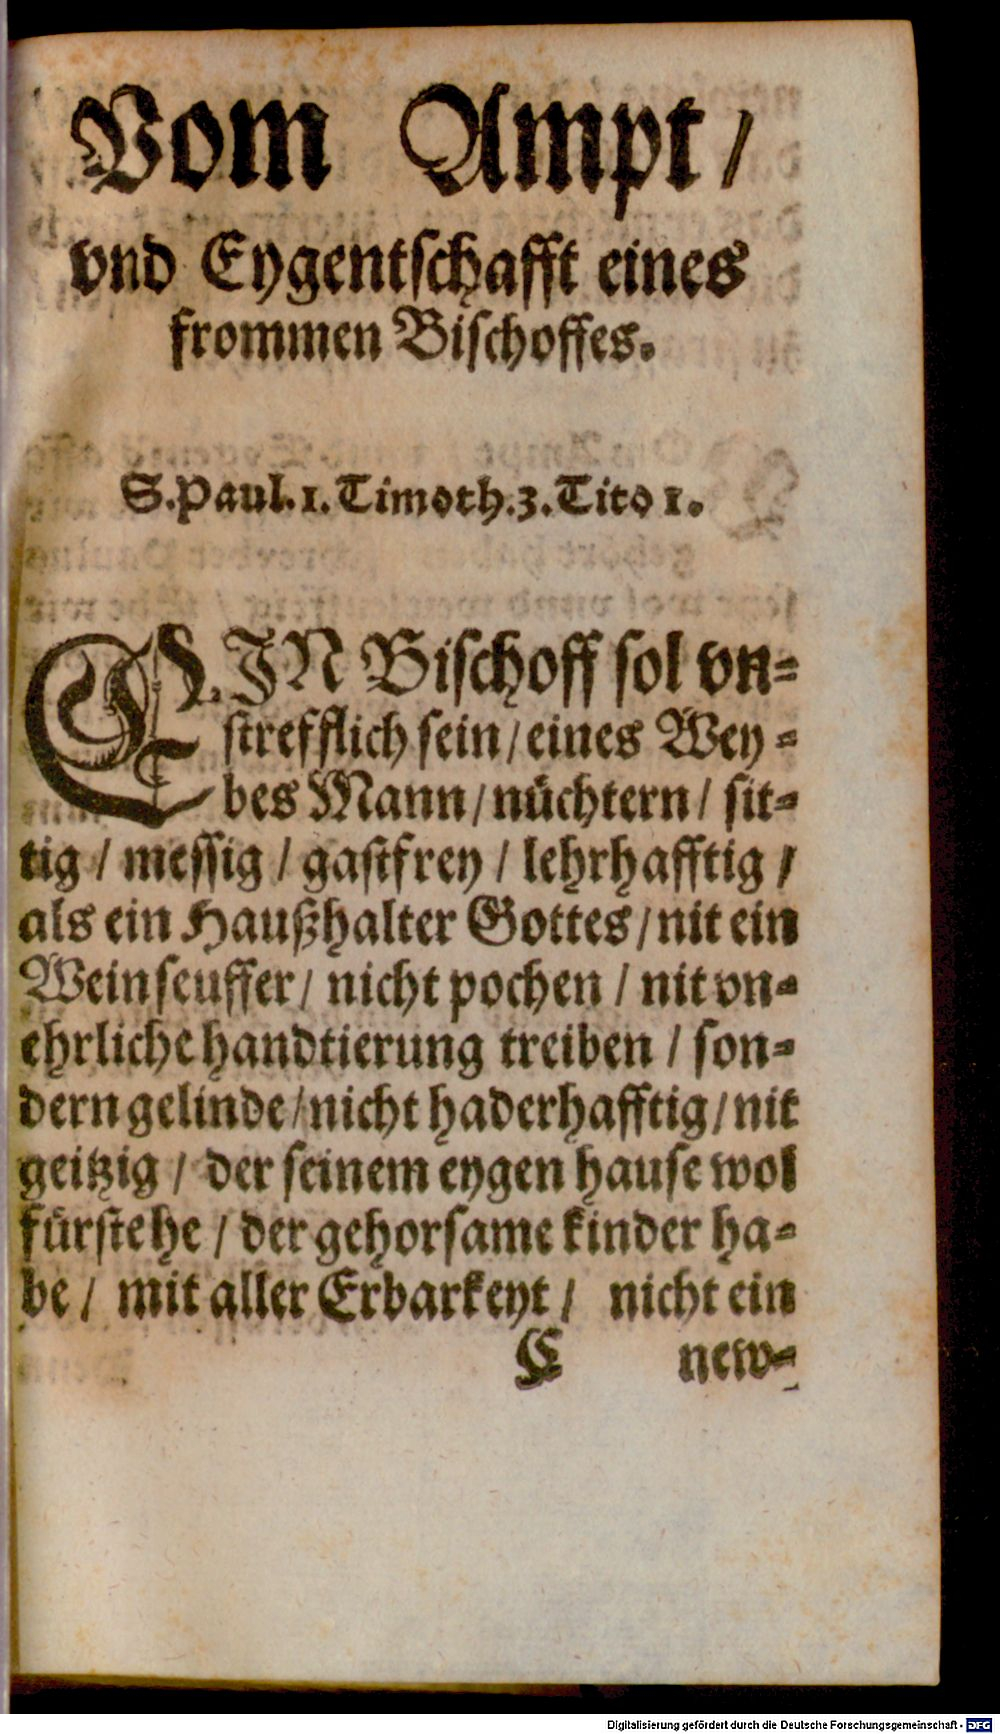 Vom Ampt /
vnd Eygentschafft eines
frommen Bischoffes.
S. Paul. 1. Timoth. 3. Tito 1.
EIN Bischoff sol vn-
strefflich sein / eines Wey-
bes Mann / nüchtern / sit-
tig / messig / gastfrey / lehrhafftig /
als ein Haußhalter Gottes / nit ein
Weinseuffer / nicht pochen / nit vn-
ehrliche handtierung treiben / son-
dern gelinde / nicht haderhafftig / nit
geitzig / der seinem eygen hause wol
fürstehe / der gehorsame kinder ha-
be / mit aller Erbarkeyt / nicht ein
E new-
Digitalisierung gefördert durch die Deutsche Forschungsgemeinschaft - DFG